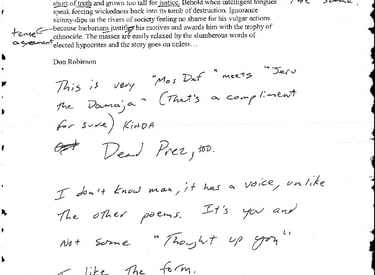 short of tooth and grown too tall for justice. Behold when intelligent tongues
speak forcing wickedness back into its tomb of destruction. Ignorance
skinny-dips in the rivers of society feeling no shame for his vulgar actions
because barbarians justify his motives and awards him with the trophy of
ethnocide. The masses are easily relaxed by the slumberous words of
elected hypocrites and the story goes on unless…
tense
agreement
Don Robinson
This is very "Mos Def" meets "Jeru
the Damaja" (That's a compliment
for sure) Kinda
Dead Prez, too.
I don't know man, it has a voice, unlike
the other poems. It's you and
Not some "Thought up you"
I like the form.